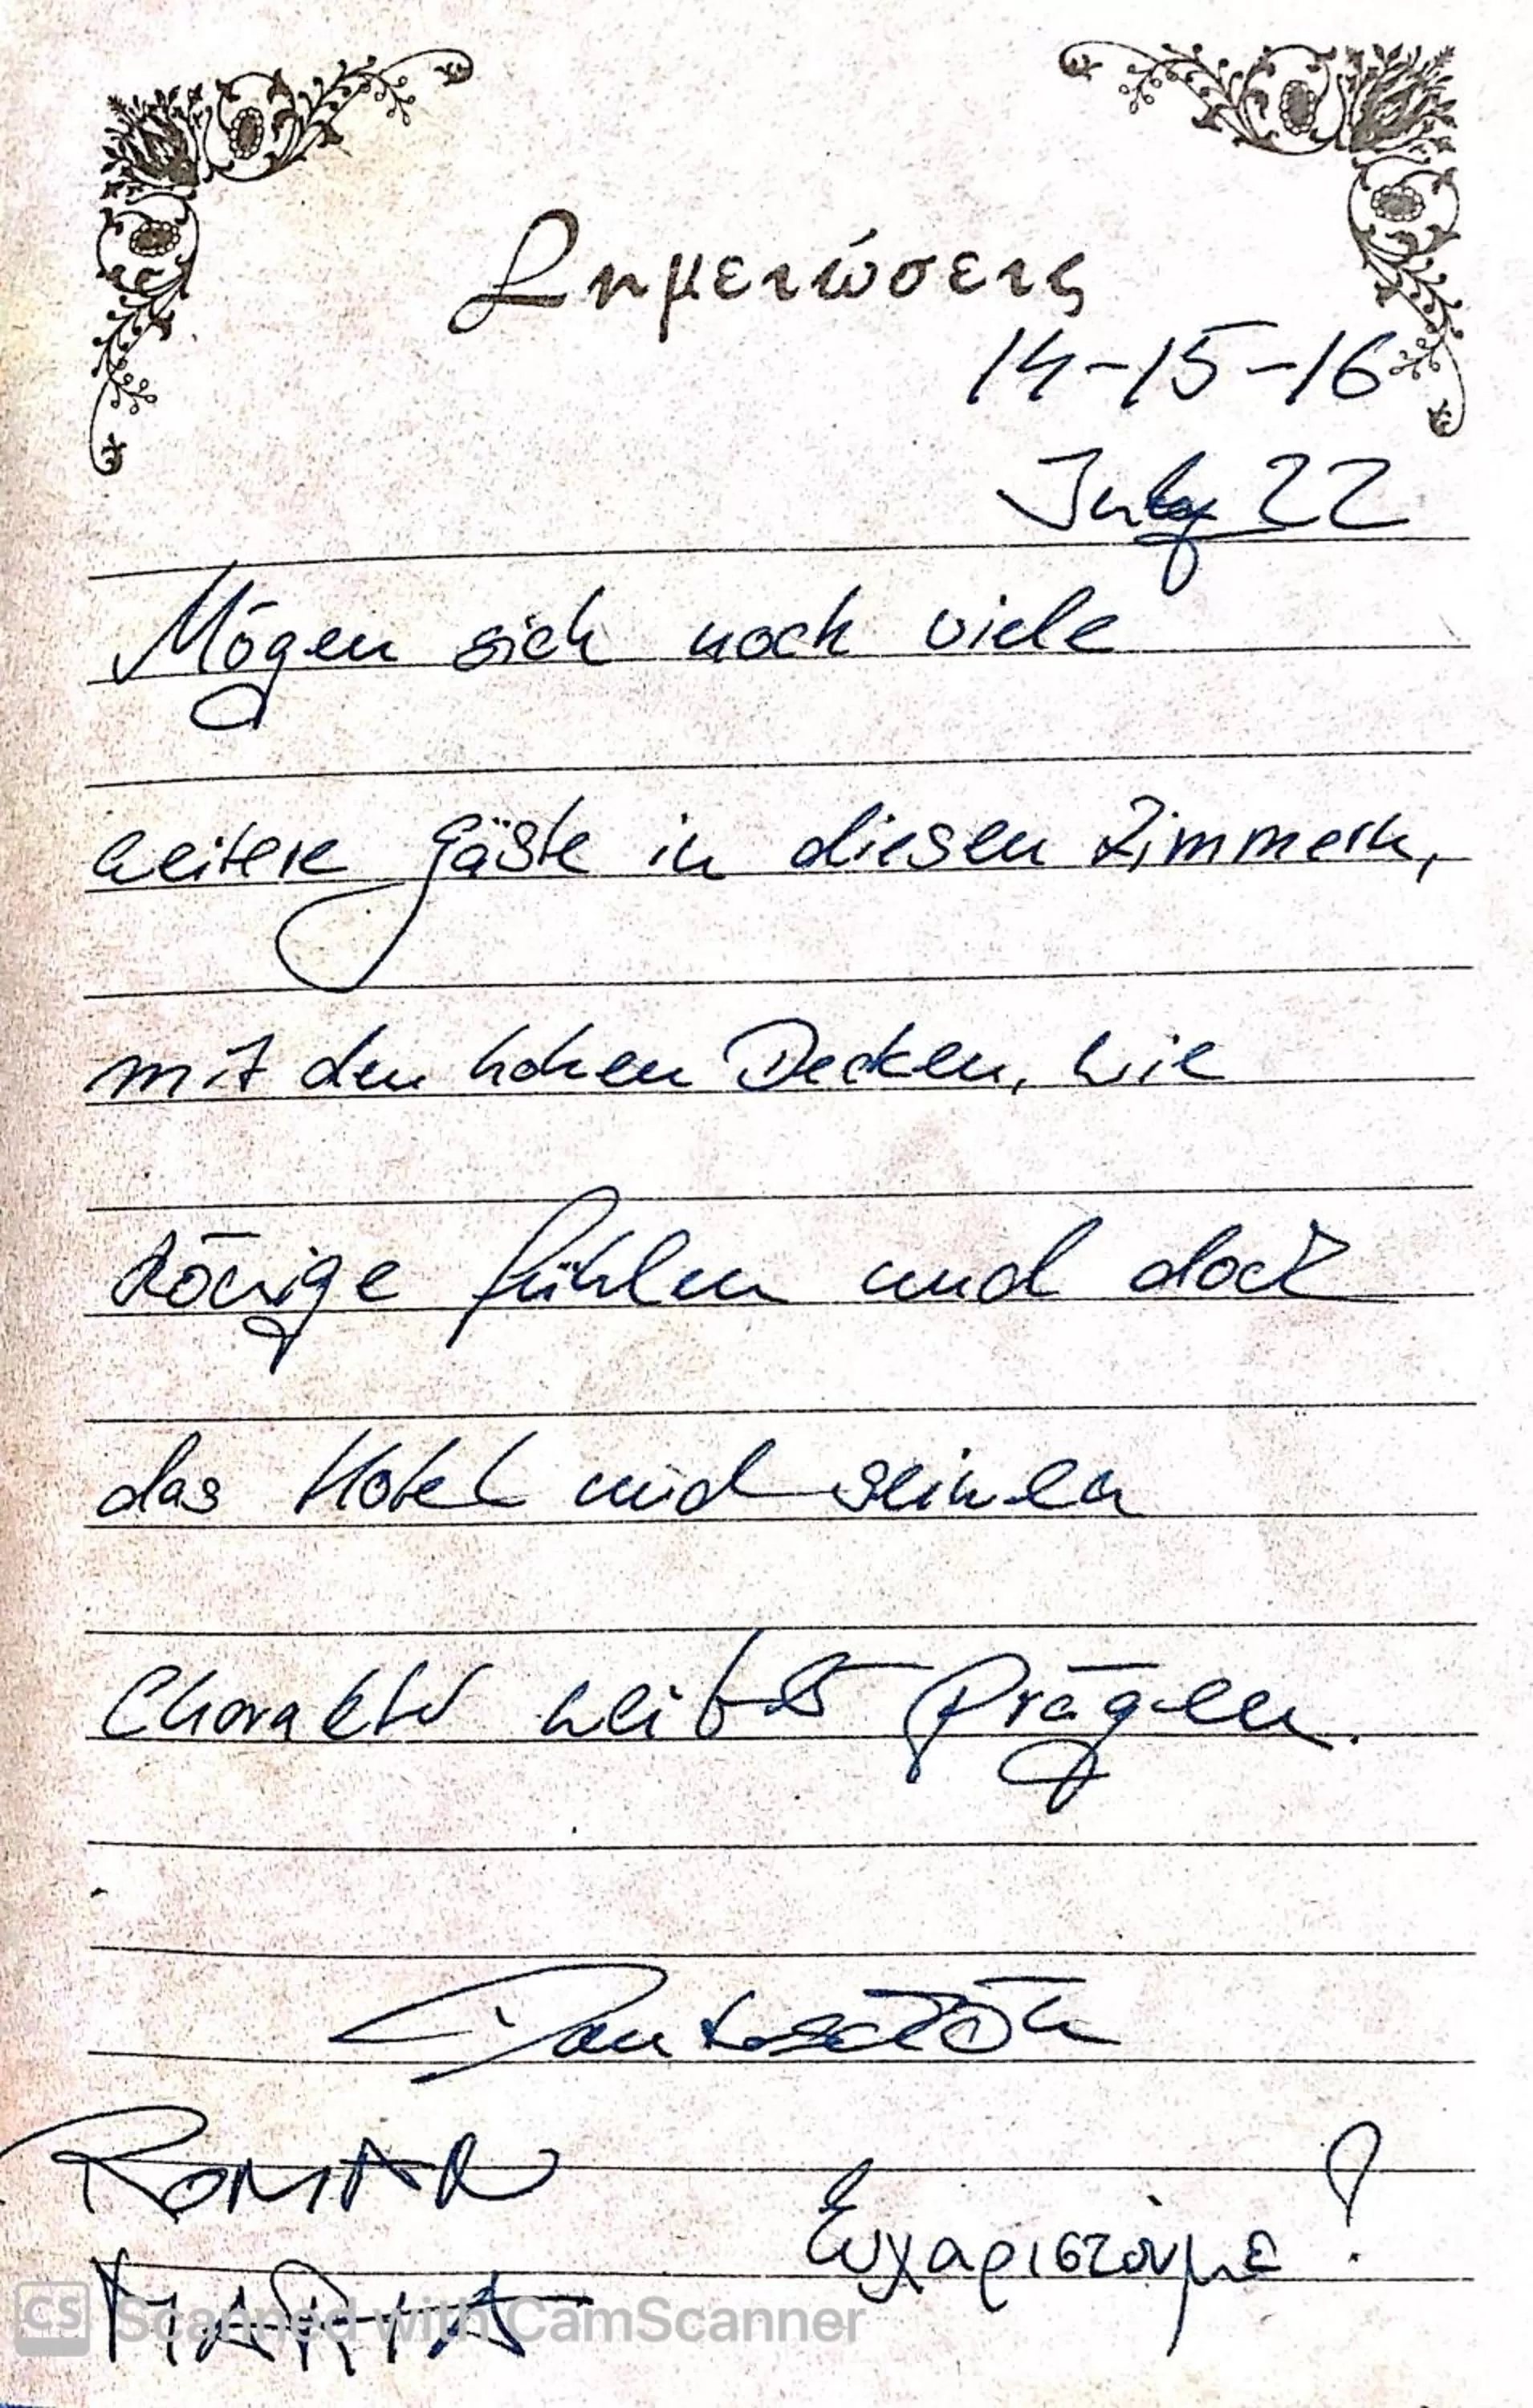 Σημειώσεις
14-15-16
July 22
Mögen sich noch viele
weitere Gäste in diesen Zimmern,
mit den hohen Decken, wie
Könige fühlen und doch
das Hotel und seinen
Charakter weiter prägen.
Dankeschön
ROMAN
Ευχαριστούμε!
MARIA
CS Scanned with CamScanner